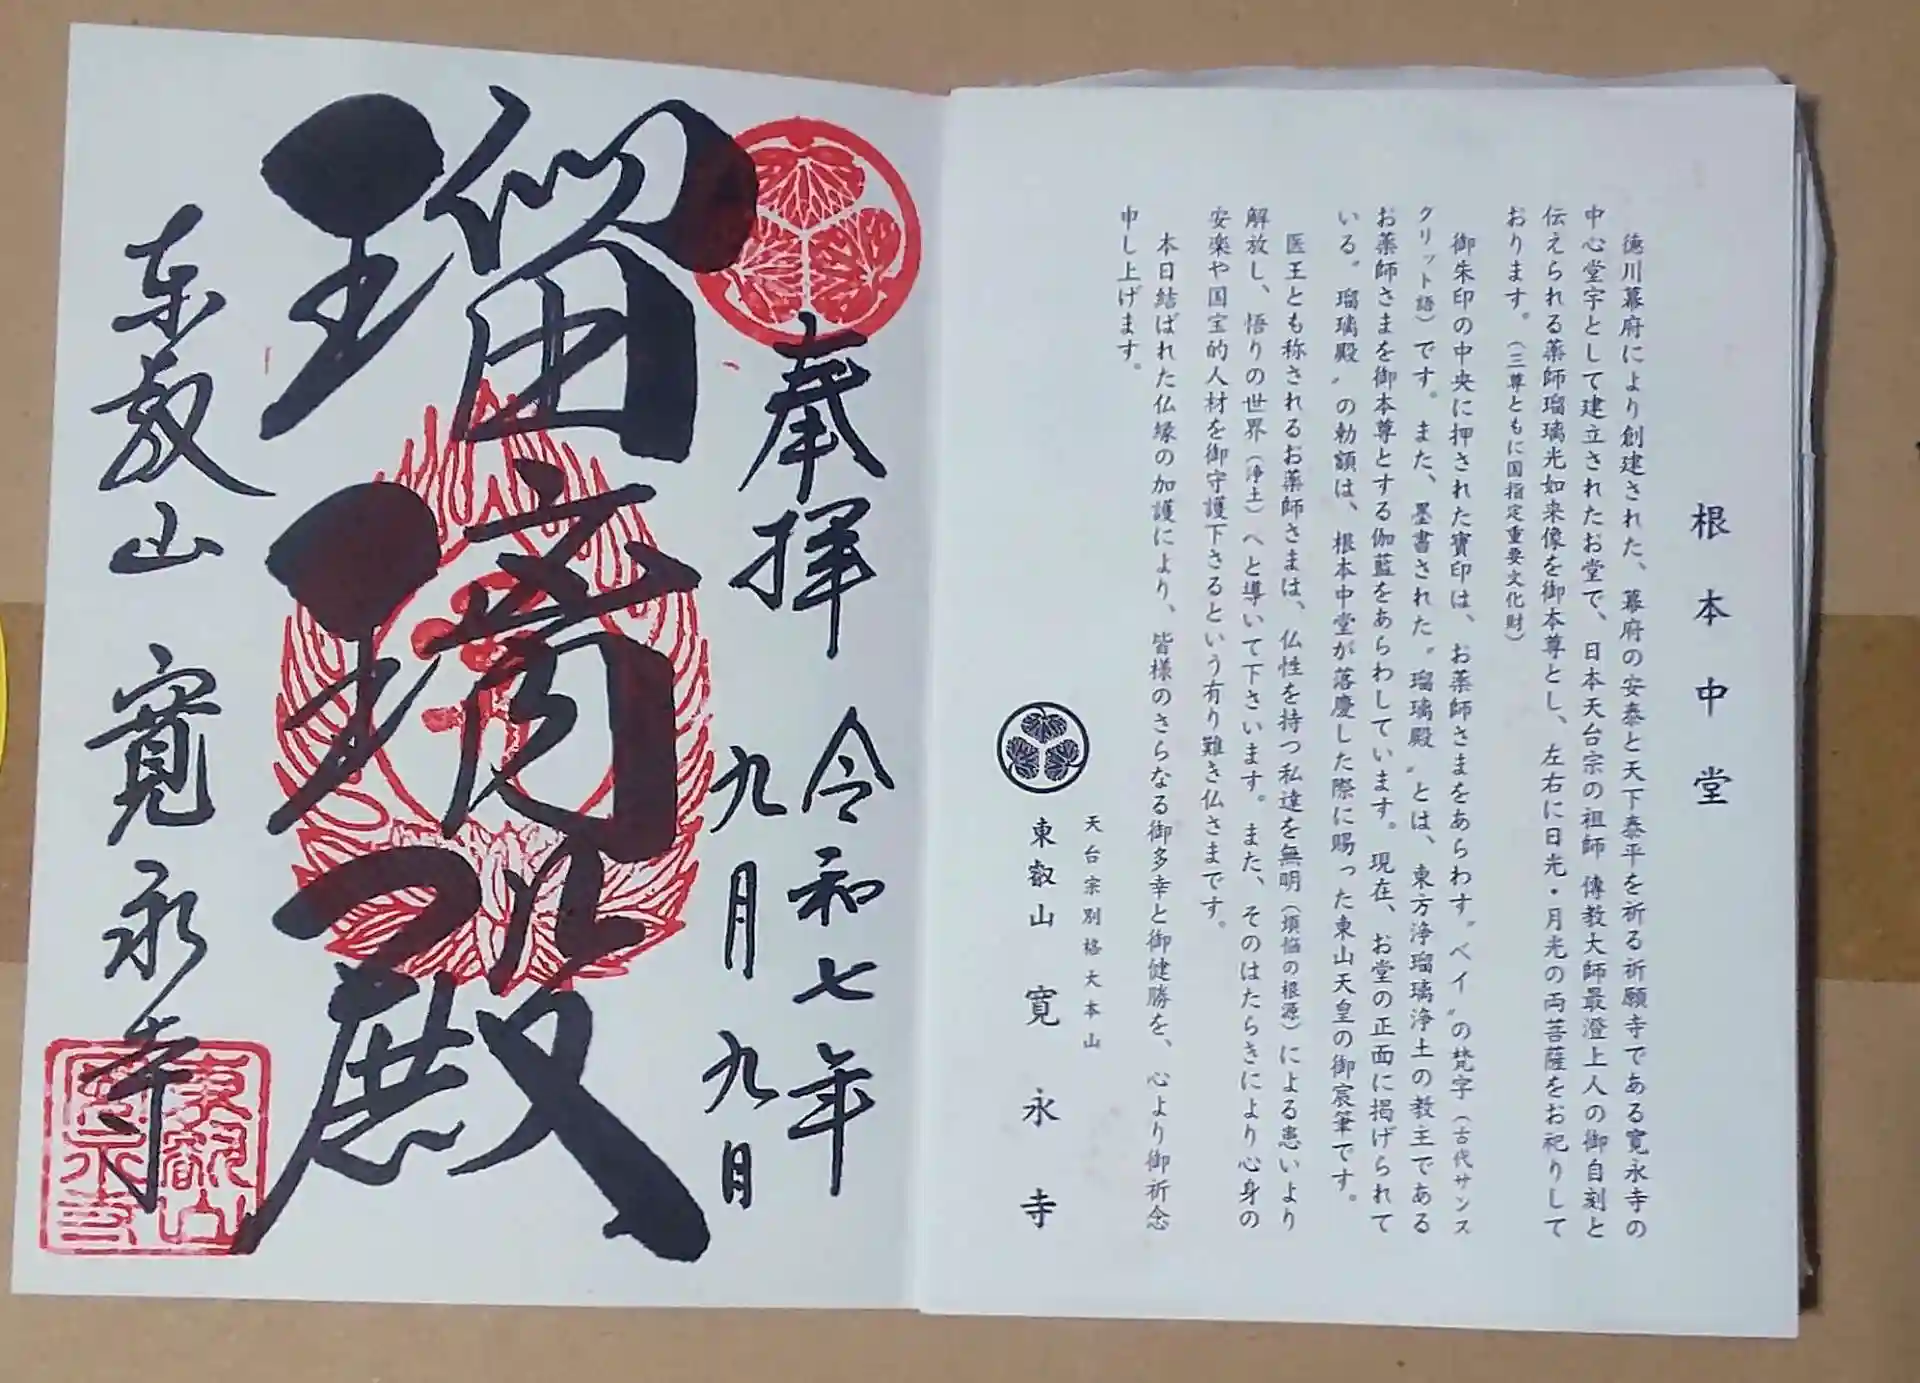 根本中堂
徳川幕府により創建された、幕府の安泰と天下泰平を祈る祈願寺である寛永寺の
中心堂宇として建立されたお堂で、日本天台宗の祖師 傳教大師最澄上人の御自刻と
伝えられる薬師瑠璃光如来像を御本尊とし、左右に日光・月光の両菩薩をお祀りして
おります。（三尊ともに国指定重要文化財）
御朱印の中央に押された寶印は、お薬師さまをあらわす〝ベイ〟の梵字（古代サンス
クリット語）です。また、墨書された〝瑠璃殿〟とは、東方浄瑠璃浄土の教主である
お薬師さまを御本尊とする伽藍をあらわしています。現在、お堂の正面に掲げられて
いる〝瑠璃殿〟の勅額は、根本中堂が落慶した際に賜った東山天皇の御宸筆です。
医王とも称されるお薬師さまは、仏性を持つ私達を無明（煩悩の根源）による患いより
解放し、悟りの世界（浄土）へと導いて下さいます。また、そのはたらきにより心身の
安楽や国宝的人材を御守護下さるという有り難き仏さまです。
本日結ばれた仏縁の加護により、皆様のさらなる御多幸と御健勝を、心より御祈念
申し上げます。
天台宗別格大本山
東叡山 寛永寺
奉拝 令和七年
九月九日
瑠璃殿
東叡山 寛永寺
東叡山
寛永寺